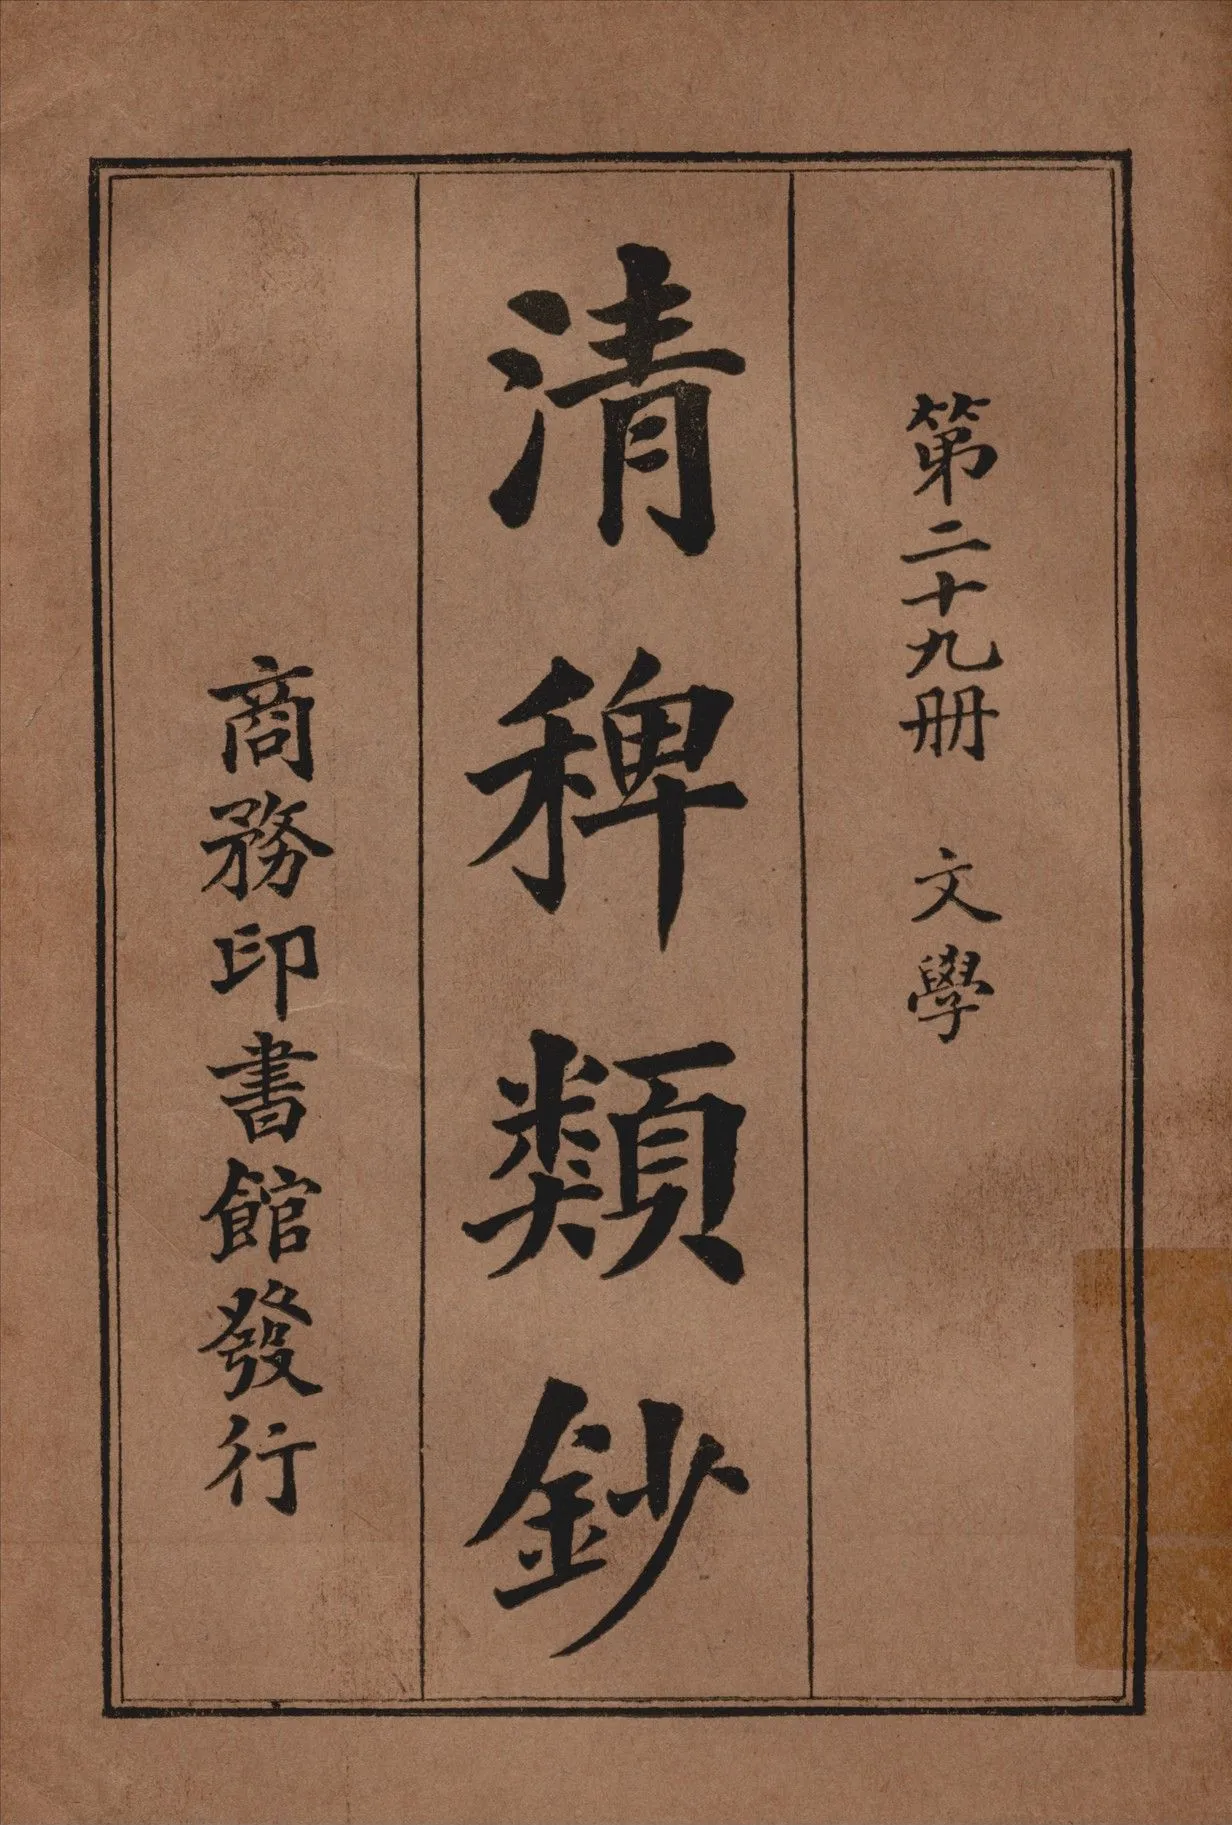 第二十九册 文學
清稗類鈔
商務印書館發行